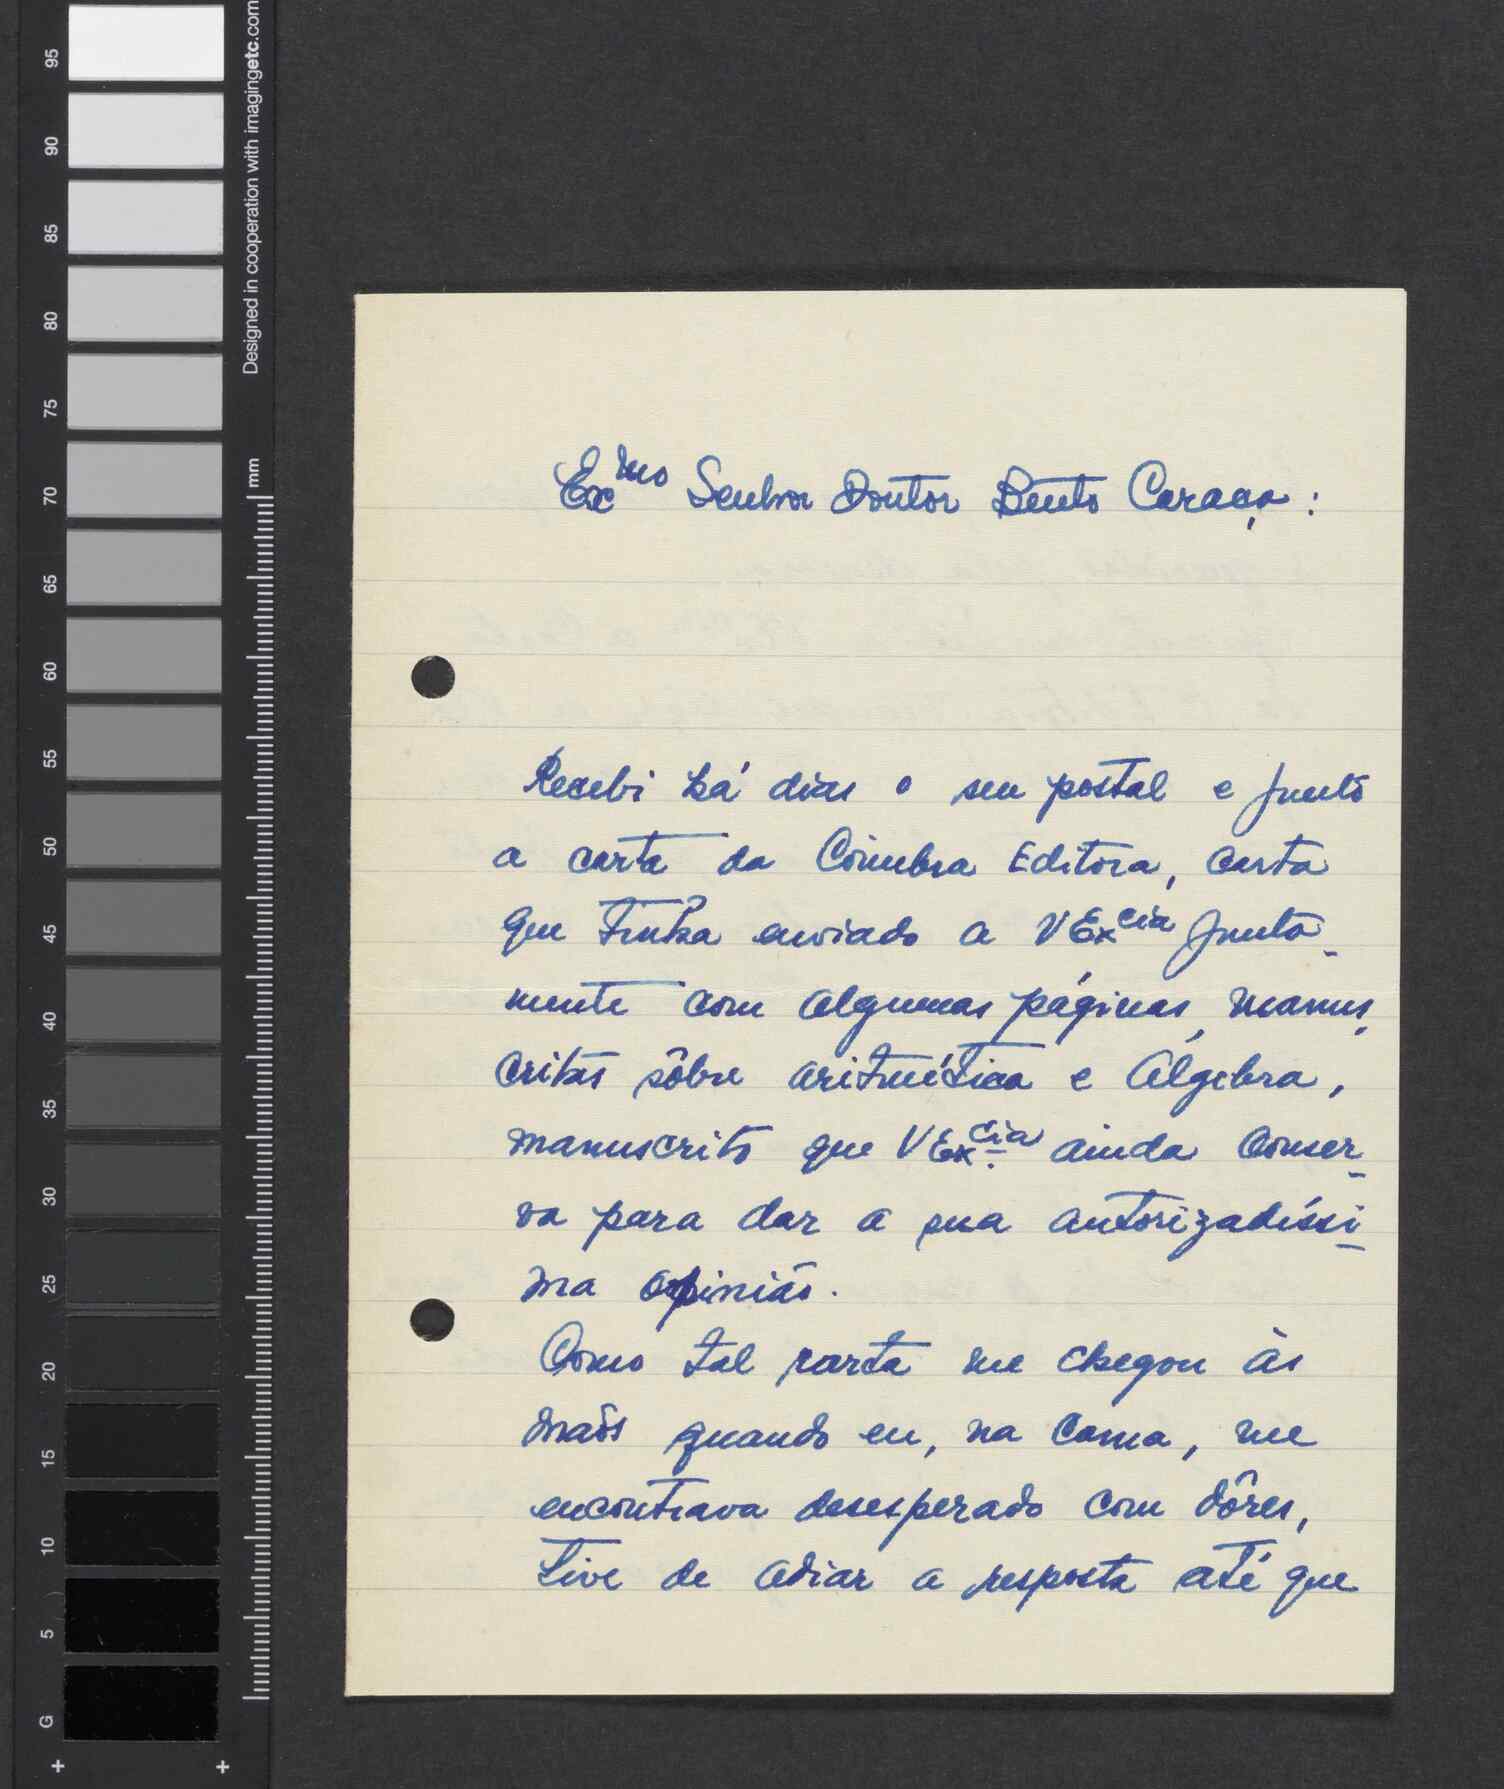 Designed in cooperation with imagingetc.com
mm
95
90
85
80
75
70
65
60
55
50
45
40
35
30
25
20
15
10
5
G
Exmo Senhor Doutor Bento Caraça :
Recebi há dias o seu postal e junto
a carta da Coimbra Editora, carta
que tinha enviado a VExcia junta-
mente com algumas páginas, manus-
critas sôbre aritmética e Álgebra,
manuscrito que VExcia ainda conser-
va para dar a sua autorizadíssi-
ma opinião.
Como tal carta me chegou às
mãos quando eu, na cama, me
encontrava desesperado com dôres,
tive de adiar a resposta até que